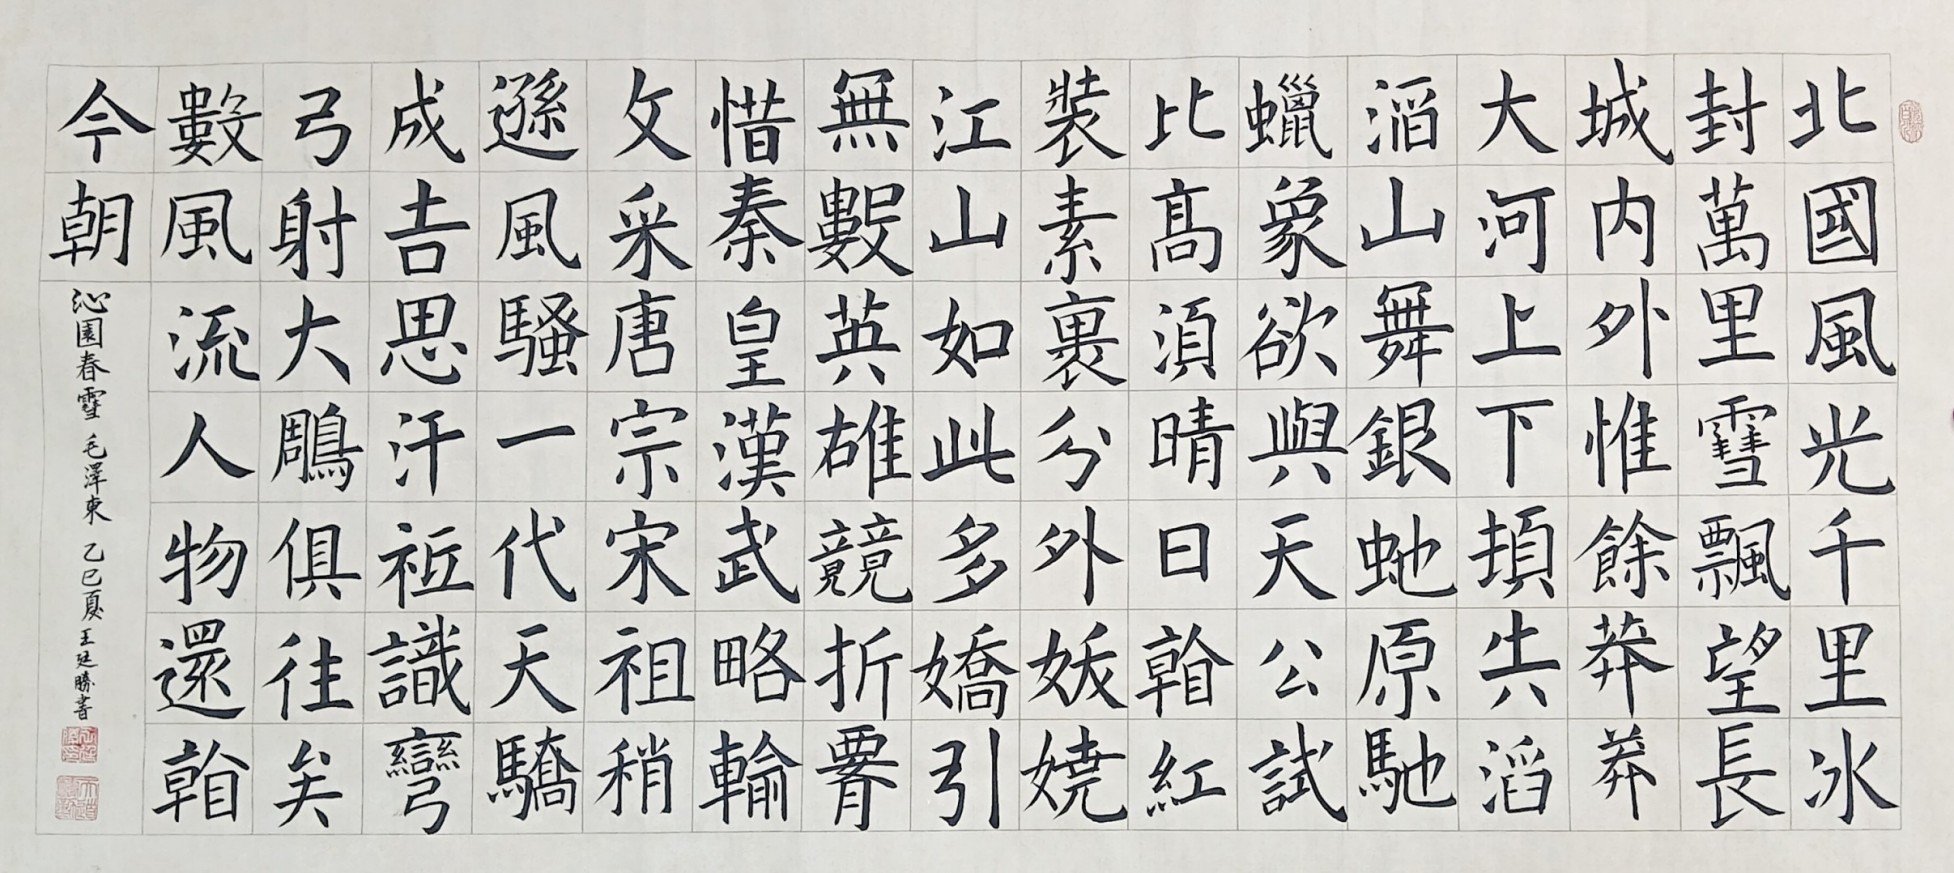 北國風光千里冰
封萬里雪飄望長
城内外惟餘莽莽
大河上下頓失滔
滔山舞銀蛇原馳
蠟象欲與天公試
比髙須晴日看紅
裝素裹分外妖嬈
江山如此多嬌引
無數英雄競折腰
惜秦皇漢武略輸
文采唐宗宋祖稍
遜風騷一代天驕
成吉思汗祗識彎
弓射大鵰俱往矣
數風流人物還看
今朝
沁園春雪 毛澤東 乙巳夏 王廷勝書